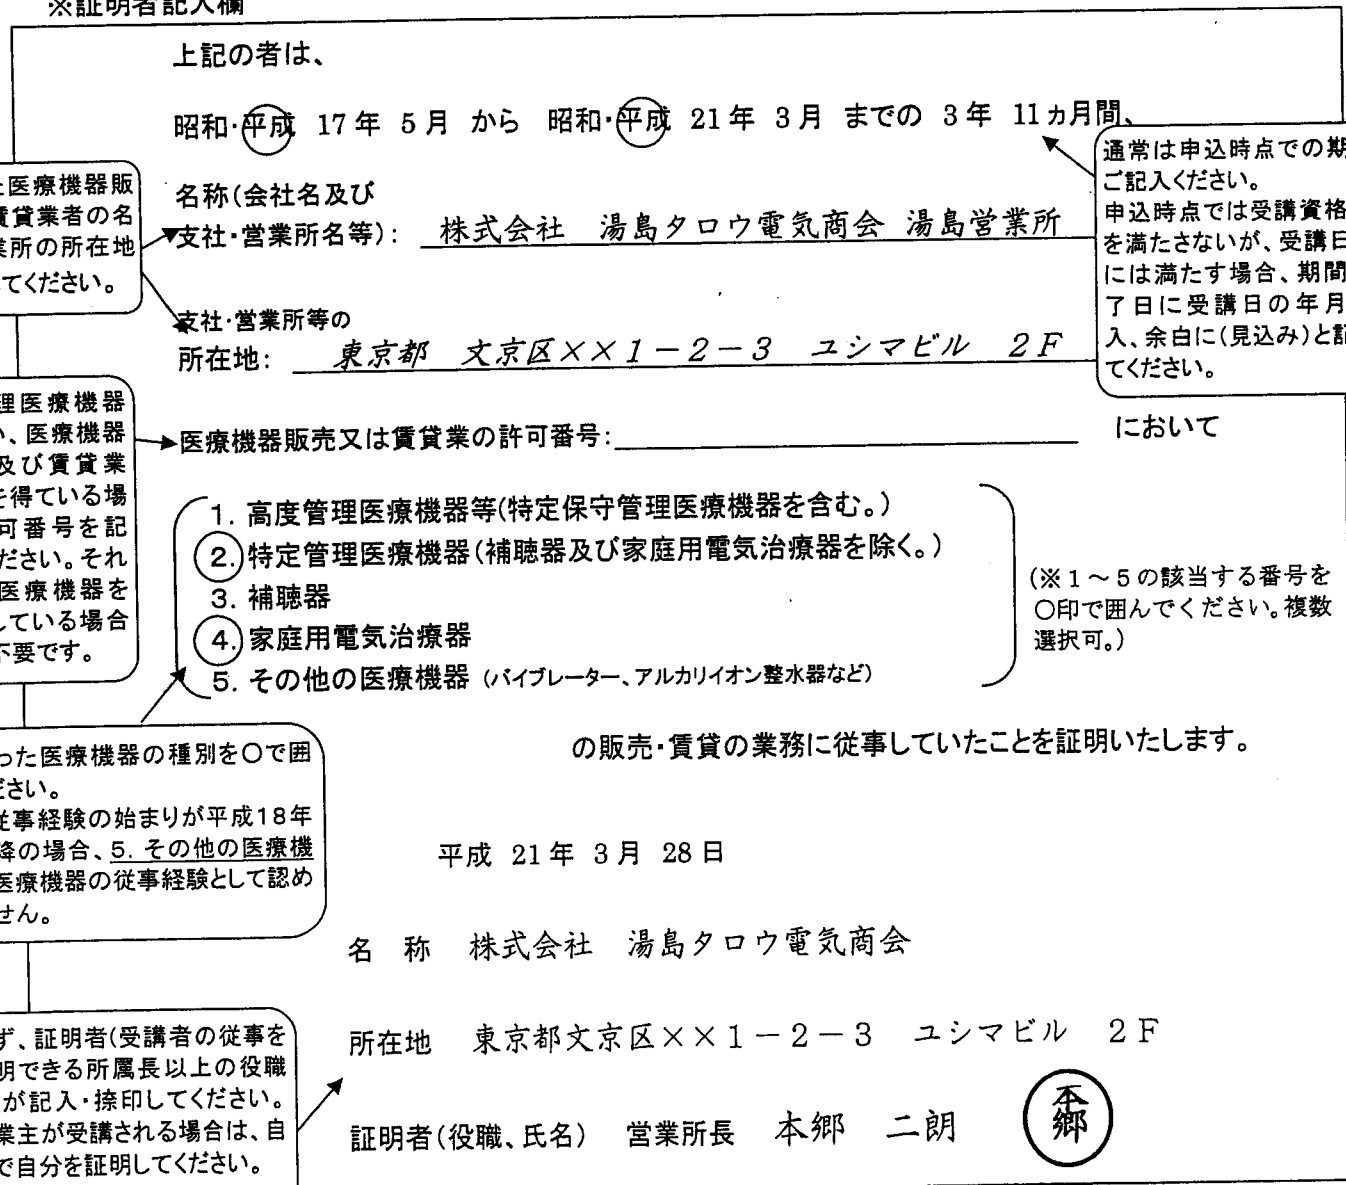 ※証明者記入欄
上記の者は、
昭和・平成 17年 5月 から 昭和・平成 21年 3月 までの 3年 11ヵ月間、
名称(会社名及び
支社・営業所名等): 株式会社 湯島タロウ電気商会 湯島営業所
支社・営業所等の
所在地: 東京都 文京区××1-2-3 ユシマビル 2F
医療機器販売又は賃貸業の許可番号:
において
1. 高度管理医療機器等(特定保守管理医療機器を含む。)
2. 特定管理医療機器(補聴器及び家庭用電気治療器を除く。)
3. 補聴器
4. 家庭用電気治療器
5. その他の医療機器 (バイブレーター、アルカリイオン整水器など)
(※1~5の該当する番号を
○印で囲んでください。複数
選択可。)
の販売・賃貸の業務に従事していたことを証明いたします。
平成 21年 3月 28日
名 称 株式会社 湯島タロウ電気商会
所在地 東京都文京区××1-2-3 ユシマビル 2F
証明者(役職、氏名) 営業所長 本郷 二朗 本郷
通常は申込時点での期
ご記入ください。
申込時点では受講資格
を満たさないが、受講日
には満たす場合、期間
了日に受講日の年月
入、余白に(見込み)と記
てください。
医療機器販
賃貸業者の名
業所の所在地
てください。
理医療機器
い、医療機器
及び賃貸業
を得ている場
可番号を記
ださい。それ
医療機器を
している場合
不要です。
った医療機器の種別を○で囲
ださい。
従事経験の始まりが平成18年
降の場合、5. その他の医療機
医療機器の従事経験として認め
せん。
ず、証明者(受講者の従事を
明できる所属長以上の役職
が記入・捺印してください。
業主が受講される場合は、自
で自分を証明してください。